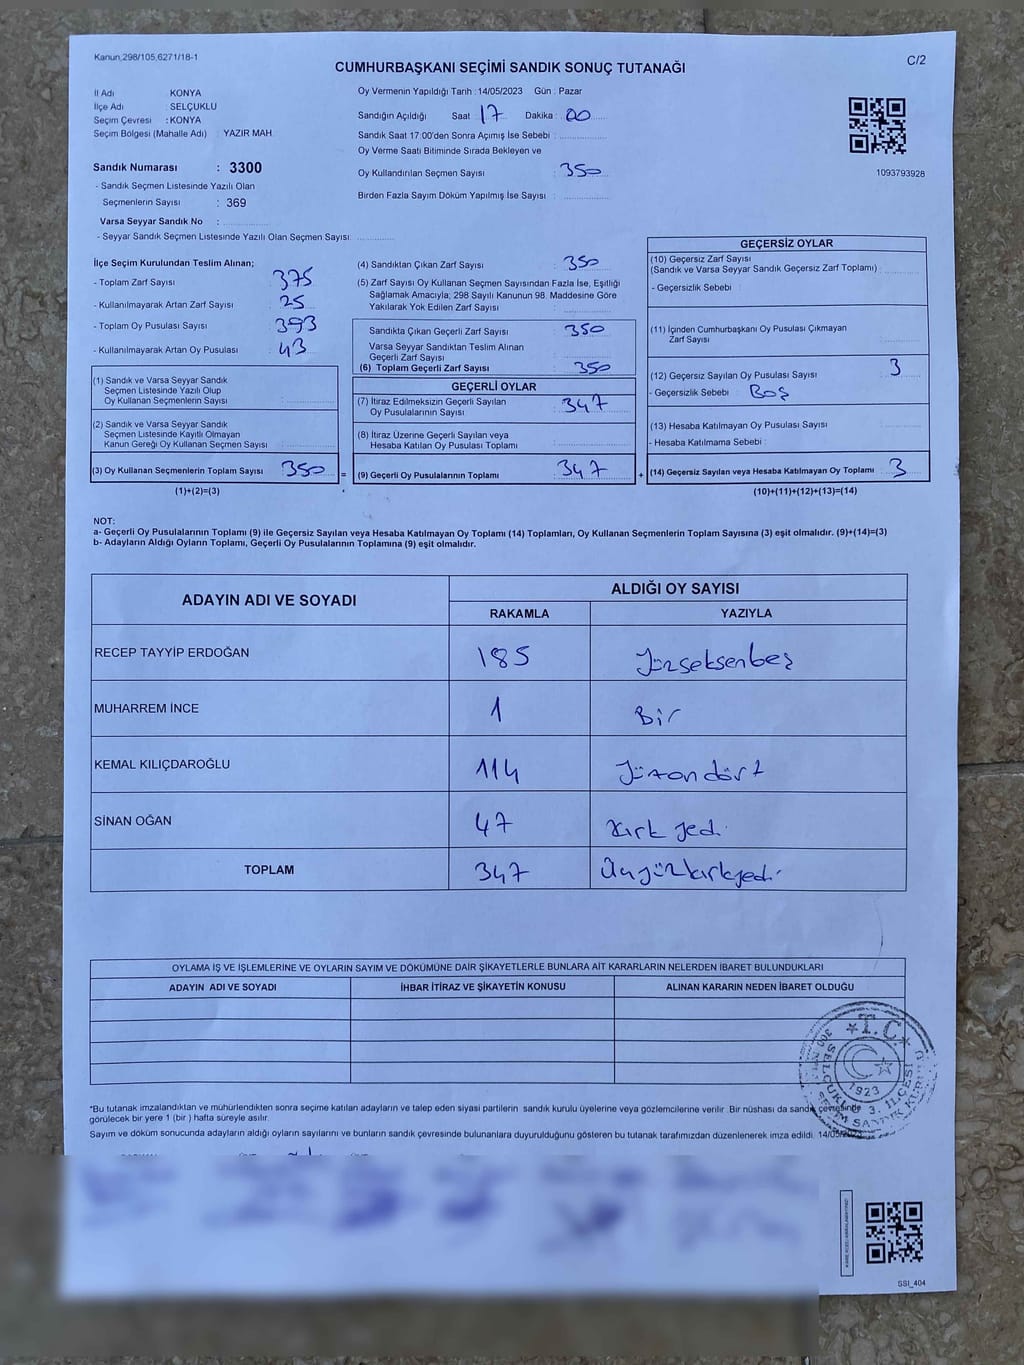 Kanun;298/105,6271/18-1
C/2
CUMHURBAŞKANI SEÇİMİ SANDIK SONUÇ TUTANAĞI
İl Adı KONYA
İlçe Adı : SELÇUKLU
Seçim Çevresi : KONYA
Seçim Bölgesi (Mahalle Adı) : YAZIR MAH.
Sandık Numarası : 3300
- Sandık Seçmen Listesinde Yazılı Olan
Seçmenlerin Sayısı : 369
Varsa Seyyar Sandık No :
- Seyyar Sandık Seçmen Listesinde Yazılı Olan Seçmen Sayısı:
Oy Vermenin Yapıldığı Tarih : 14/05/2023 Gün : Pazar
Sandığın Açıldığı Saat 17 Dakika : 00
Sandık Saat 17:00'den Sonra Açımış İse Sebebi :
Oy Verme Saati Bitiminde Sırada Bekleyen ve
Oy Kullandırılan Seçmen Sayısı : 350
Birden Fazla Sayım Döküm Yapılmış İse Sayısı :
1093793928
İlçe Seçim Kurulundan Teslim Alınan;
- Toplam Zarf Sayısı : 375
- Kullanılmayarak Artan Zarf Sayısı : 25
- Toplam Oy Pusulası Sayısı : 393
- Kullanılmayarak Artan Oy Pusulası : 43
(1) Sandık ve Varsa Seyyar Sandık
Seçmen Listesinde Yazılı Olup
Oy Kullanan Seçmenlerin Sayısı :
(2) Sandık ve Varsa Seyyar Sandık
Seçmen Listesinde Kayıtlı Olmayan
Kanun Gereği Oy Kullanan Seçmen Sayısı :
(3) Oy Kullanan Seçmenlerin Toplam Sayısı 350 =
(1)+(2)=(3)
(4) Sandıktan Çıkan Zarf Sayısı : 350
(5) Zarf Sayısı Oy Kullanan Seçmen Sayısından Fazla İse, Eşitliği
Sağlamak Amacıyla; 298 Sayılı Kanunun 98. Maddesine Göre
Yakılarak Yok Edilen Zarf Sayısı :
Sandıkta Çıkan Geçerli Zarf Sayısı : 350
Varsa Seyyar Sandıktan Teslim Alınan
Geçerli Zarf Sayısı
(6) Toplam Geçerli Zarf Sayısı : 350
GEÇERLİ OYLAR
(7) İtiraz Edilmeksizin Geçerli Sayılan
Oy Pusulalarının Sayısı : 347
(8) İtiraz Üzerine Geçerli Sayılan veya
Hesaba Katılan Oy Pusulası Toplamı :
(9) Geçerli Oy Pusulalarının Toplamı : 347 +
GEÇERSİZ OYLAR
(10) Geçersiz Zarf Sayısı
(Sandık ve Varsa Seyyar Sandık Geçersiz Zarf Toplamı)
- Geçersizlik Sebebi :
(11) İçinden Cumhurbaşkanı Oy Pusulası Çıkmayan
Zarf Sayısı
(12) Geçersiz Sayılan Oy Pusulası Sayısı : 3
- Geçersizlik Sebebi : Boş
(13) Hesaba Katılmayan Oy Pusulası Sayısı :
- Hesaba Katılmama Sebebi :
(14) Geçersiz Sayılan veya Hesaba Katılmayan Oy Toplamı : 3
(10)+(11)+(12)+(13)=(14)
NOT:
a- Geçerli Oy Pusulalarının Toplamı (9) ile Geçersiz Sayılan veya Hesaba Katılmayan Oy Toplamı (14) Toplamları, Oy Kullanan Seçmenlerin Toplam Sayısına (3) eşit olmalıdır. (9)+(14)=(3)
b- Adayların Aldığı Oyların Toplamı, Geçerli Oy Pusulalarının Toplamına (9) eşit olmalıdır.
ADAYIN ADI VE SOYADI ALDIĞI OY SAYISI
RAKAMLA YAZIYLA
RECEP TAYYİP ERDOĞAN 185 Yüzseksenbeş
MUHARREM İNCE 1 Bir
KEMAL KILIÇDAROĞLU 114 Yüzondört
SİNAN OĞAN 47 Kırk yedi
TOPLAM 347 Üçyüzkırkyedi
OYLAMA İŞ VE İŞLEMLERİNE VE OYLARIN SAYIM VE DÖKÜMÜNE DAİR ŞİKAYETLERLE BUNLARA AİT KARARLARIN NELERDEN İBARET BULUNDUKLARI
ADAYIN ADI VE SOYADI İHBAR İTİRAZ VE ŞİKAYETİN KONUSU ALINAN KARARIN NEDEN İBARET OLDUĞU
T.C.
1923
*Bu tutanak imzalandıktan ve mühürlendikten sonra seçime katılan adayların ve talep eden siyasi partilerin sandık kurulu üyelerine veya gözlemcilerine verilir. Bir nüshası da sandık çevresinde
görülecek bir yere 1 (bir ) hafta süreyle asılır.
Sayım ve döküm sonucunda adayların aldığı oyların sayılarını ve bunların sandık çevresinde bulunanlara duyurulduğunu gösteren bu tutanak tarafımızdan düzenlenerek imza edildi. 14/05/2023
SSI_404